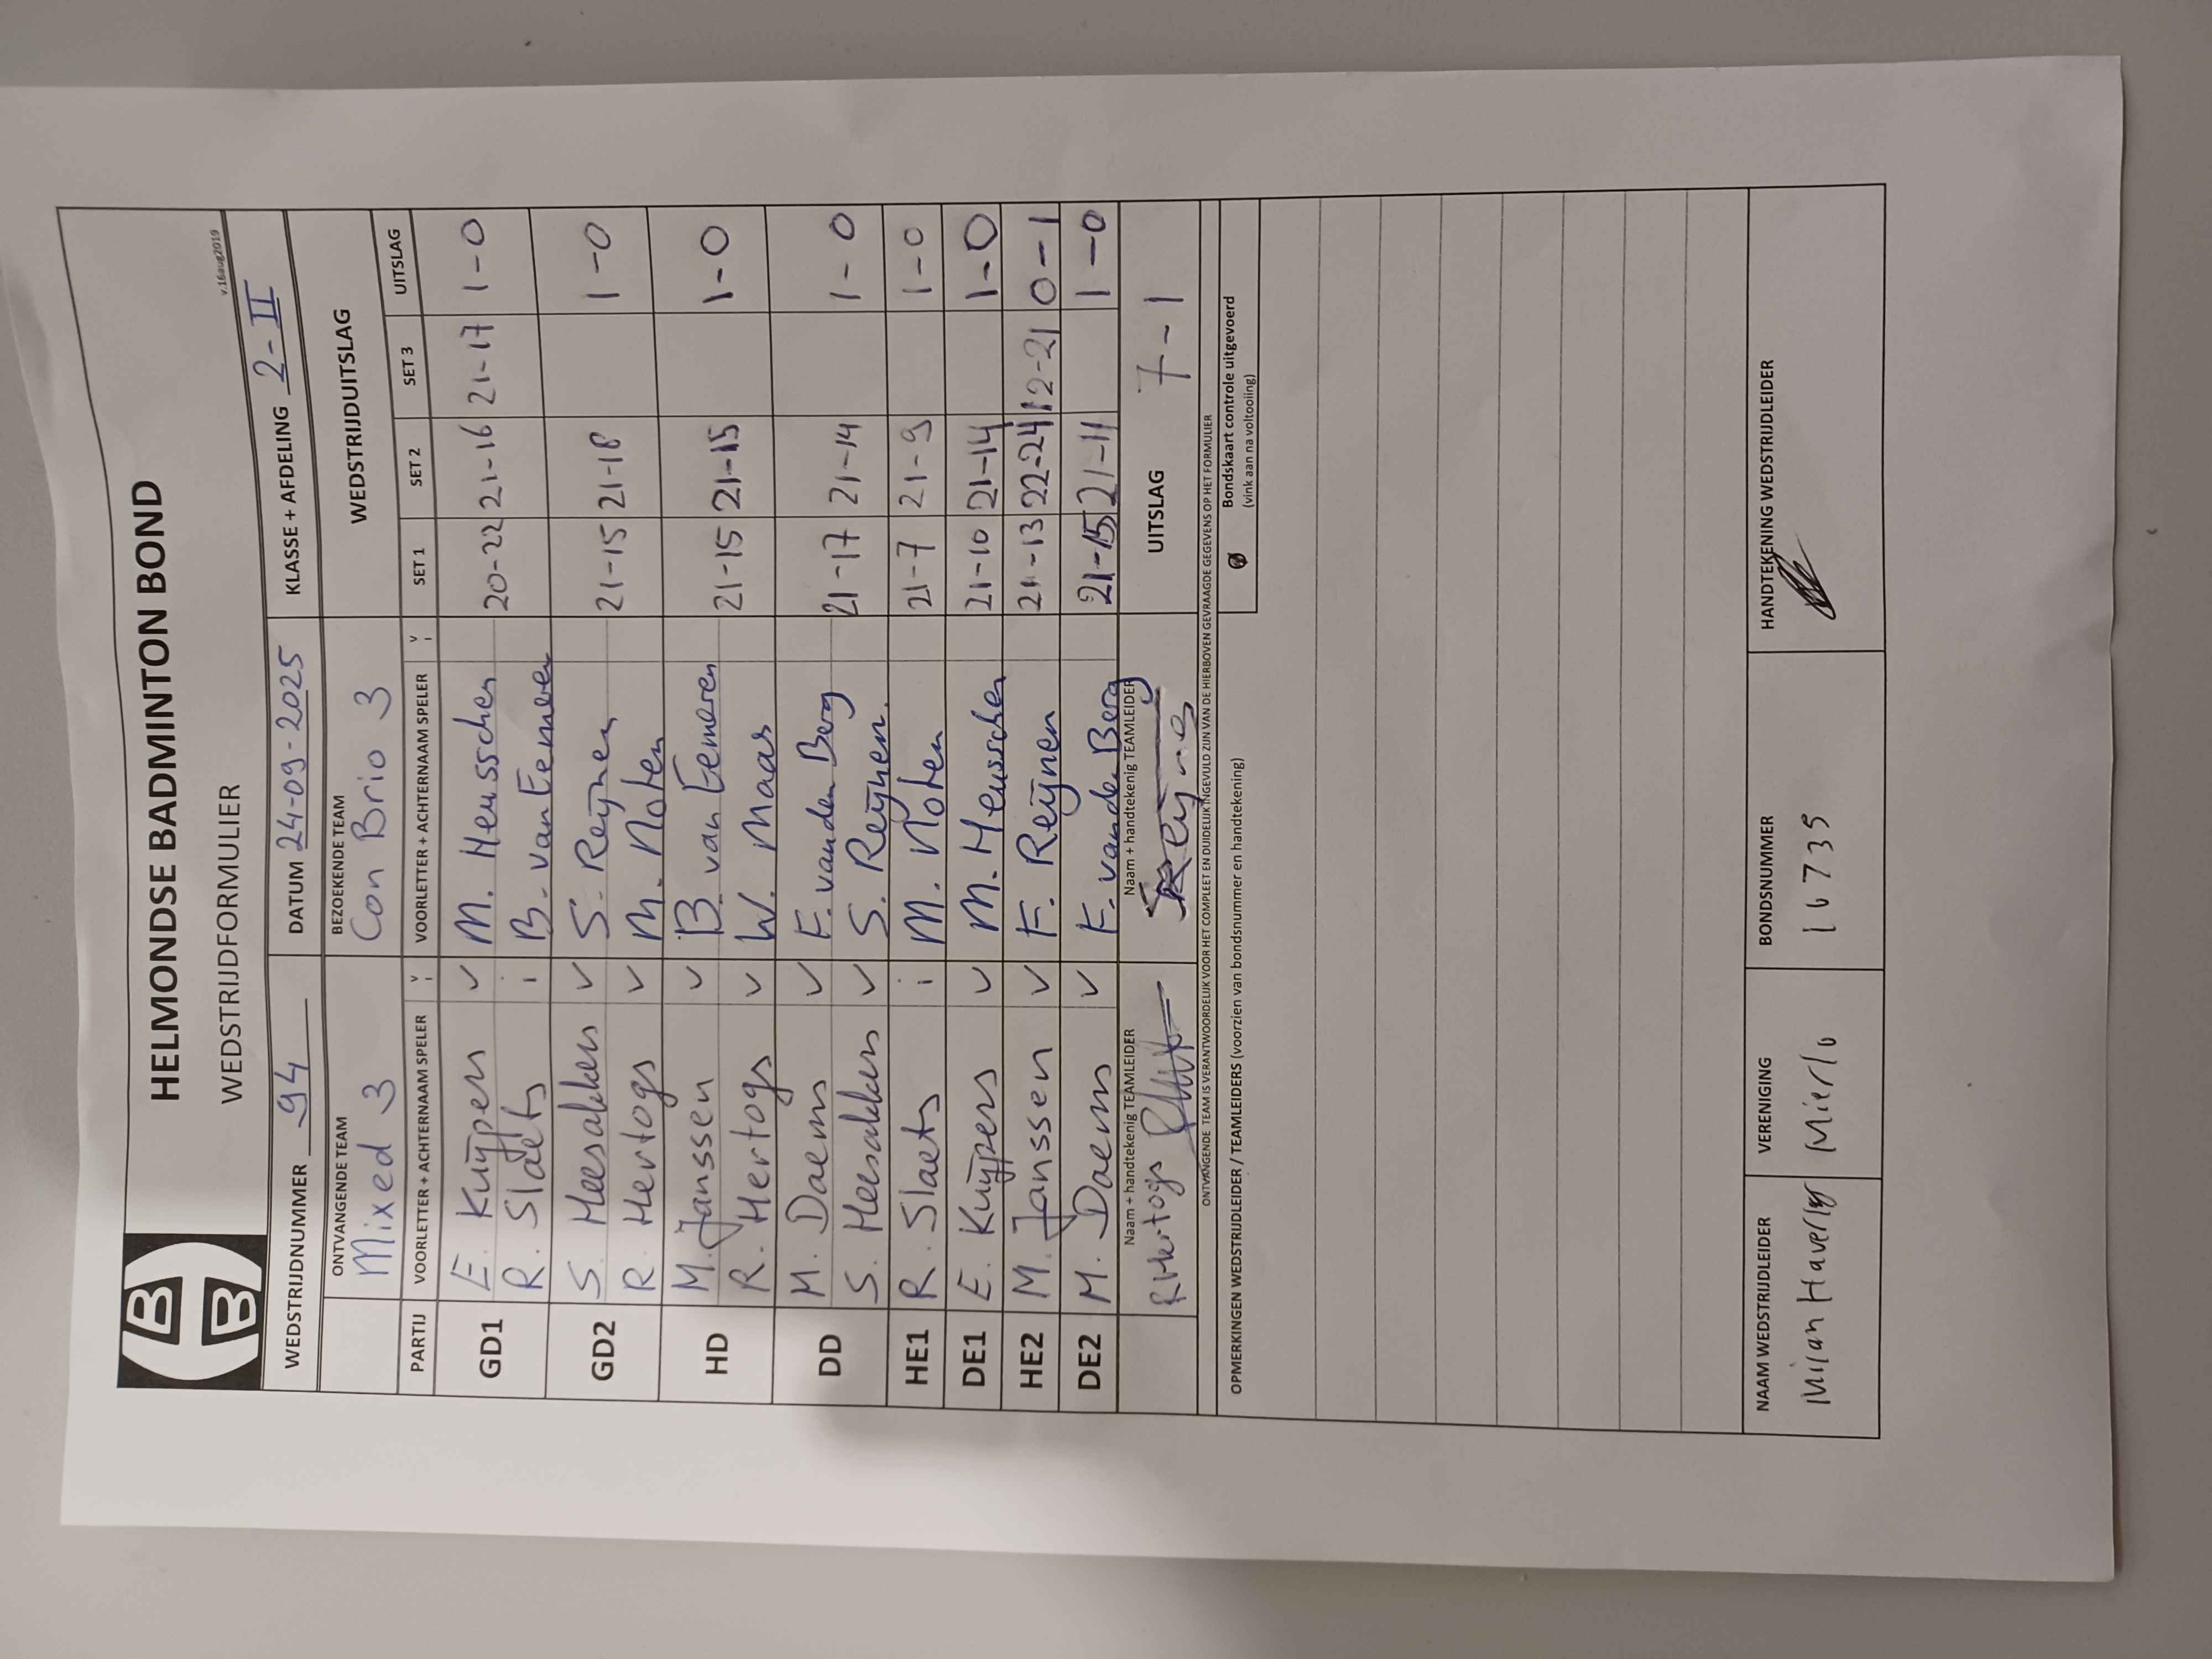 HELMONDSE BADMINTON BOND
WEDSTRIJDFORMULIER
v.16aug2019
WEDSTRIJDNUMMER 94 DATUM 24-09-2025 KLASSE + AFDELING 2-II
ONTVANGENDE TEAM BEZOEKENDE TEAM WEDSTRIJDUITSLAG
Mixed 3 Con Brio 3
PARTIJ VOORLETTER + ACHTERNAAM SPELER V VOORLETTER + ACHTERNAAM SPELER V I SET 1 SET 2 SET 3 UITSLAG
GD1 E. Kuijpers v M. Heusschen 20-22 21-16 21-17 1-0
R. Slaets i B. van Eemeren
GD2 S. Heesakkers v S. Reijnen 21-15 21-18 1-0
R. Hertogs v M. Noten
HD M. Janssen v B. van Eemeren 21-15 21-15 1-0
R. Hertogs v W. Maas
DD M. Daems v F. van den Berg 21-17 21-14 1-0
S. Heesakkers v S. Reijnen.
HE1 R. Slaets i M. Noten 21-7 21-9 1-0
DE1 E. Kuijpers v M. Heusschen 21-10 21-14 1-0
HE2 M. Janssen v F. Reijnen 21-13 22-24 12-21 0-1
DE2 M. Daems v F. van de Berg 21-15 21-11 1-0
Naam + handtekenig TEAMLEIDER Naam + handtekenig TEAMLEIDER UITSLAG 7-1
R Hertogs
ONTVANGENDE TEAM IS VERANTWOORDELIJK VOOR HET COMPLEET EN DUIDELIJK INGEVULD ZIJN VAN DE HIERBOVEN GEVRAAGDE GEGEVENS OP HET FORMULIER
OPMERKINGEN WEDSTRIJDLEIDER / TEAMLEIDERS (voorzien van bondsnummer en handtekening) Bondskaart controle uitgevoerd
(vink aan na voltooiing)
NAAM WEDSTRIJDLEIDER VERENIGING BONDSNUMMER HANDTEKENING WEDSTRIJDLEIDER
Milan Haverlag Mierlo 16735